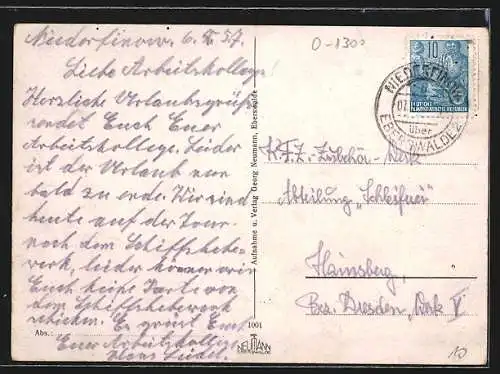 Niederfinow. 6. 8. 57.
Liebe Arbeitskollege!
Herzliche Urlaubsgrüße
sendet Euch Euer
Arbeitskollege. Leider
ist der Urlaub nur
bald zu ende. Wir sind
heute auf der Tour
nach dem Schiffshebe-
werk, leider können wir
Euch keine Karte von
dem Schiffshebewerk
schicken. Es grüßt Euch
Euer Arbeitskollege
Hans Seidel.
Abs.:
Aufnahme u. Verlag Georg Neumann, Eberswalde
1001
NEUMANN
EBERSWALDE
0-1300
10
DEUTSCHE
DEMOKRATISCHE REPUBLIK
NIEDERFINOW
über
EBERSWALDE 2
K.F.Z. Zubehör-Werk
Abteilung „Schleiferei"
Hainsberg,
Bez. Dresden, Werk V
10